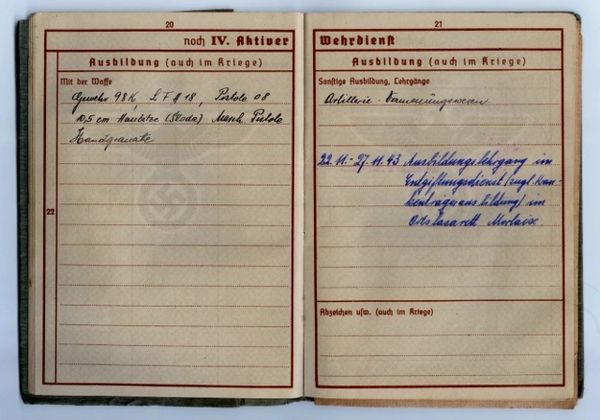 20
noch IV. Aktiver
Ausbildung (auch im Kriege)
Mit der Waffe
Gewehr 98K, L F H 18, Pistole 08
10,5 cm Haubitze (Skoda) Masch. Pistole
Handgranate
22
21
Wehrdienst
Ausbildung (auch im Kriege)
Sonstige Ausbildung, Lehrgänge
Artillerie-Vermessungswesen
22.11.-27.11.43 Ausbildungslehrgang im
Entgiftungsdienst (zugl. Kran-
kenträgerausbildung) im
Ortslazarett Morlaix
Abzeichen usw. (auch im Kriege)